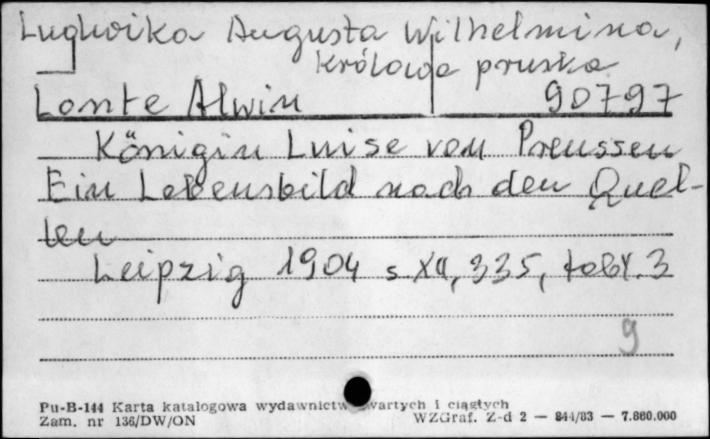 Ludwika Augusta Wilhelmina,
Królowa pruska
Lonke Alwin 90797
Königin Luise von Preussen
Ein Lebensbild nach den Quel-
len
Leipzig 1904 s XII, 335, tabl. 3
9
Pu-B-144 Karta katalogowa wydawnictw zwartych i ciągłych
Zam. nr 136/DW/ON WZGraf. Z-d 2 — 844/83 — 7.860.000